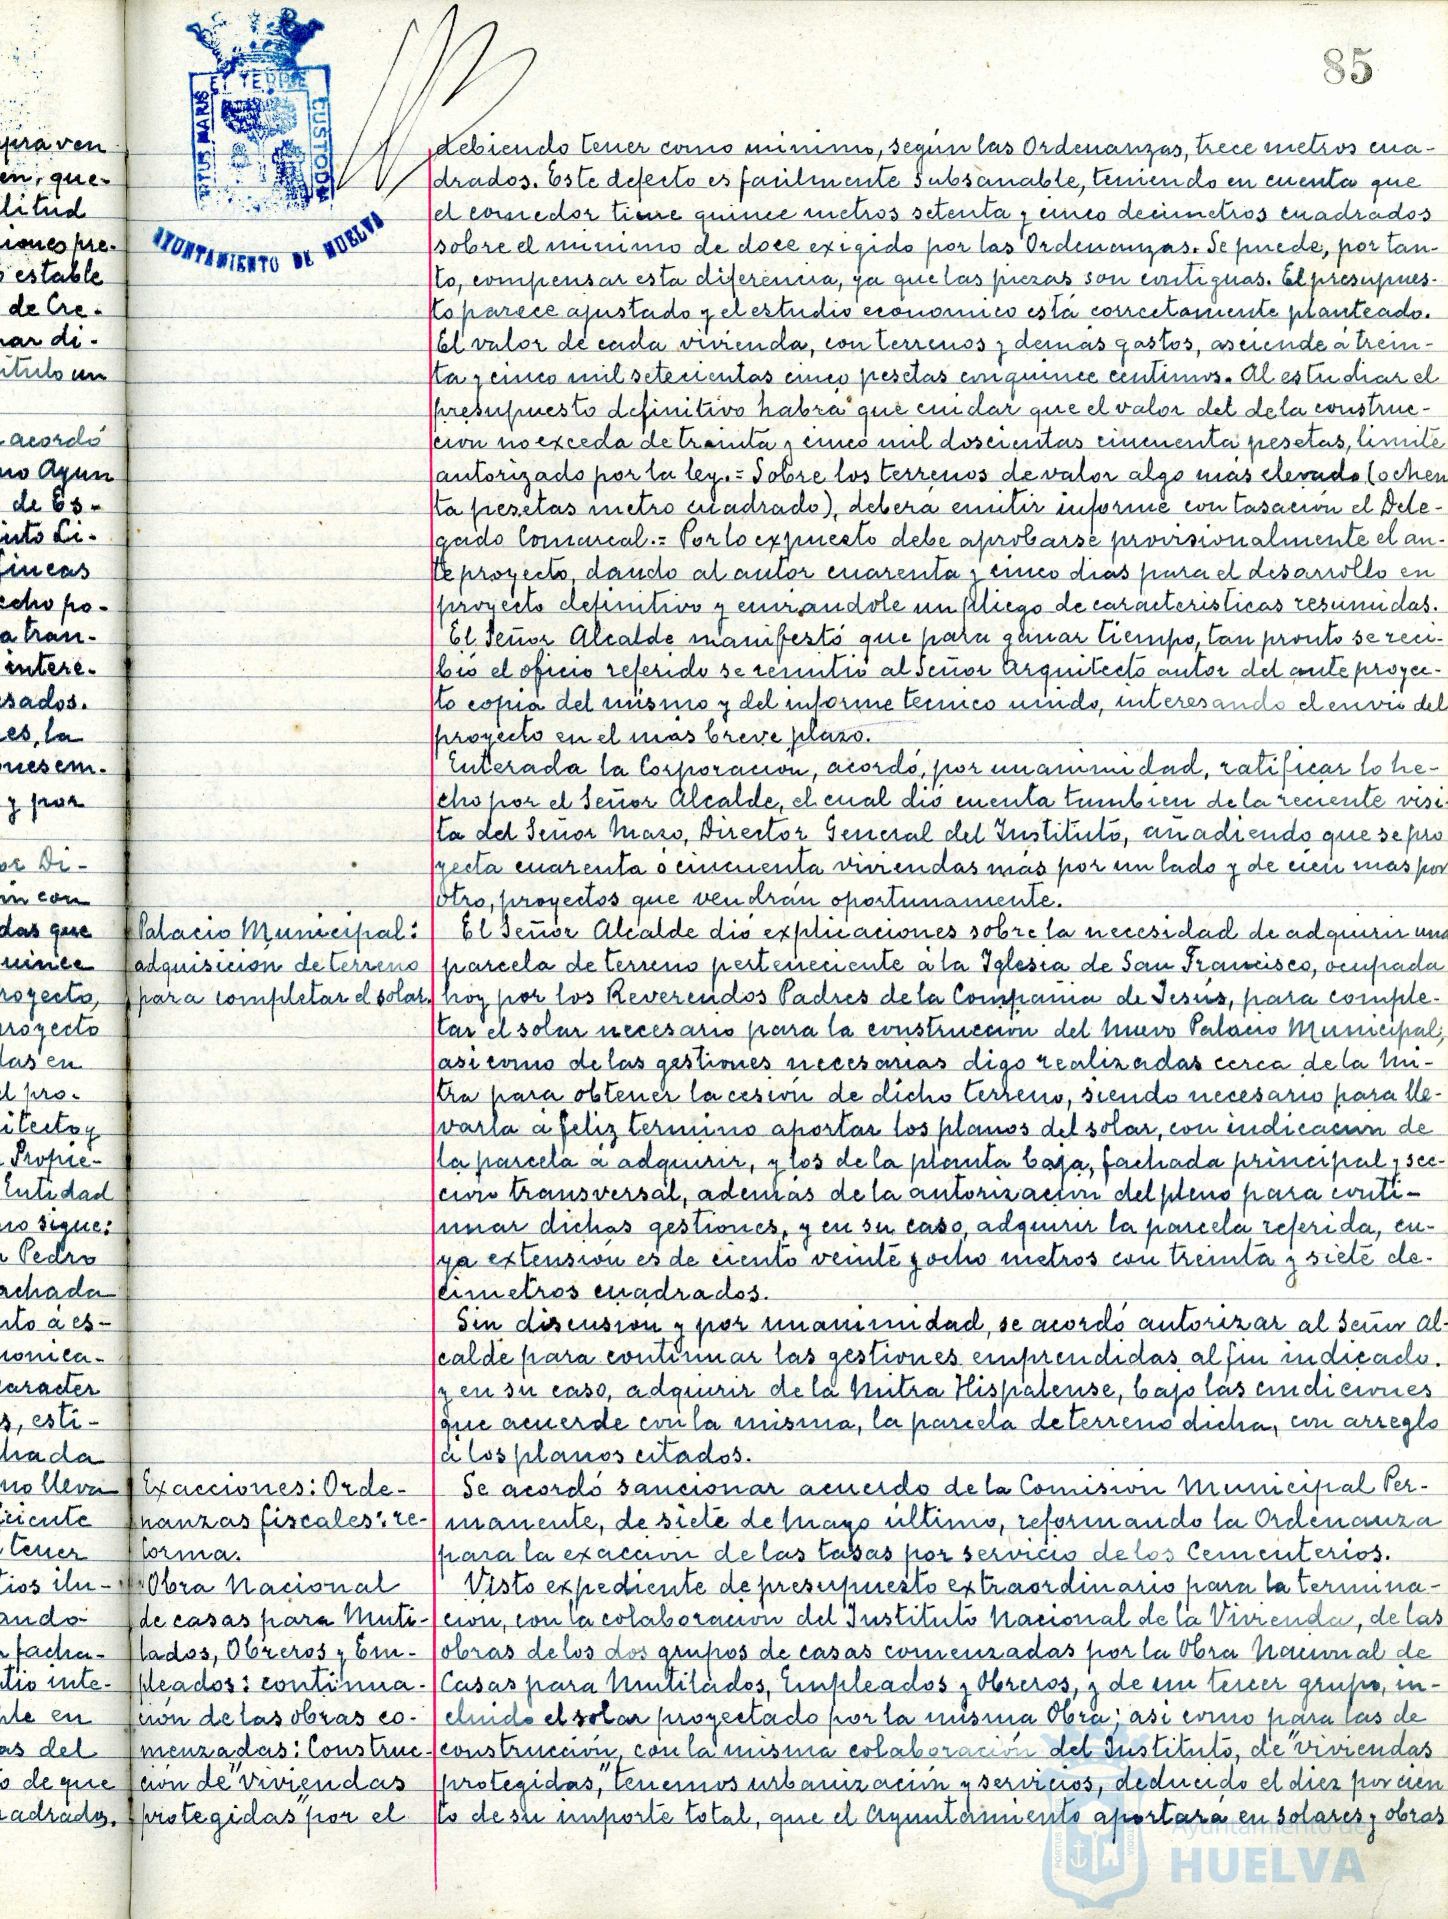 85
PORTUS MARIS ET TERRE CUSTODIA
AYUNTAMIENTO DE HUELVA
debiendo tener como minimo, según las Ordenanzas, trece metros cua-
drados. Este defecto es facilmente subsanable, teniendo en cuenta que
el comedor tiene quince metros setenta y cinco decimetros cuadrados
sobre el minimo de doce exigido por las Ordenanzas. Se puede, por tan-
to, compensar esta diferencia, ya que las piezas son contiguas. El presupues-
to parece ajustado y el estudio economico está correctamente planteado.
El valor de cada vivienda, con terrenos y demás gastos, asciende á trein-
ta y cinco mil setecientas cinco pesetas con quince centimos. Al estudiar el
presupuesto definitivo habrá que cuidar que el valor del de la construc-
cion no exceda de treinta y cinco mil doscientas cincuenta pesetas, limite
autorizado por la ley.= Sobre los terrenos de valor algo más elevado (ochen
ta pesetas metro cuadrado), deberá emitir informe con tasación el Dele-
gado Comarcal.= Por lo expuesto debe aprobarse provisionalmente el an-
te proyecto, dando al autor cuarenta y cinco dias para el desarrollo en
proyecto definitivo y enviandole un pliego de caracteristicas resumidas.
El Señor Alcalde manifestó que para ganar tiempo, tan pronto se reci-
bió el oficio referido se remitió al Señor Arquitecto autor del ante proyec-
to copia del mismo y del informe tecnico unido, interesando el envio del
proyecto en el más breve plazo.
Enterada la Corporacion, acordó, por unanimidad, ratificar lo he-
cho por el Señor Alcalde, el cual dió cuenta tambien de la reciente visi-
ta del Señor Mazo, Director General del Instituto, añadiendo que se pro
yecta cuarenta ó cincuenta viviendas más por un lado y de cien mas por
otro, proyectos que vendrán oportunamente.
Palacio Municipal:
adquisicion de terreno
para completar el solar.
El Señor Alcalde dió explicaciones sobre la necesidad de adquirir una
parcela de terreno perteneciente á la Iglesia de San Francisco, ocupada
hoy por los Reverendos Padres de la Compañia de Jesús, para comple-
tar el solar necesario para la construccion del nuevo Palacio Municipal,
asi como de las gestiones necesarias digo realizadas cerca de la Mi-
tra para obtener la cesión de dicho terreno, siendo necesario para lle-
varla á feliz termino aportar los planos del solar, con indicacion de
la parcela á adquirir, y los de la planta baja, fachada principal y sec-
cion transversal, además de la autorización del pleno para conti-
nuar dichas gestiones, y en su caso, adquirir la parcela referida, cu-
ya extensión es de ciento veinte y ocho metros con treinta y siete de-
cimetros cuadrados.
Sin discusion y por unanimidad, se acordó autorizar al Señor Al-
calde para continuar las gestiones emprendidas al fin indicado.
y en su caso, adquirir de la Mitra Hispalense, bajo las condiciones
que acuerde con la misma, la parcela de terreno dicha, con arreglo
á los planos citados.
Exacciones: Orde-
nanzas fiscales: re-
forma.
Se acordó sancionar acuerdo de la Comision Municipal Per-
manente, de siete de Mayo último, reformando la Ordenanza
para la exaccion de las tasas por servicio de los Cementerios.
Obra Nacional
de casas para Muti-
lados, Obreros y Em-
pleados: continua-
ción de las obras co-
menzadas: Construc-
ción de "viviendas
protegidas" por el
Visto expediente de presupuesto extraordinario para la termina-
cion, con la colaboracion del Instituto Nacional de la Vivienda, de las
obras de los dos grupos de casas comenzadas por la Obra Nacional de
Casas para Mutilados, Empleados y Obreros, y de un tercer grupo, in-
cluido el solar proyectado por la misma Obra; asi como para las de
construcción, con la misma colaboración del Instituto, de "viviendas
protegidas," tenemos urbanización y servicios, deducido el diez por cien
to de su importe total, que el Ayuntamiento aportará en solares y obras
Ayuntamiento de
HUELVA
pra ven
en, que-
litud
iones pre-
estable
de Cre-
ar di-
itulo un
acordó
no Ayun
de Es-
into Li-
fincas
echo po-
a tran-
intere-
sados.
es, la
ones em-
y por
or Di-
in con
das que
uince
royecto,
proyecto
das en
l pro-
itecto y
Propie-
Entidad
mo sigue:
n Pedro
achada
nto á es-
monica-
caracter
s, esti-
hada
no lleva
iciente
tener
tios ilu-
ando
facha-
tio inte-
ble en
as del
o de que
uadrados.